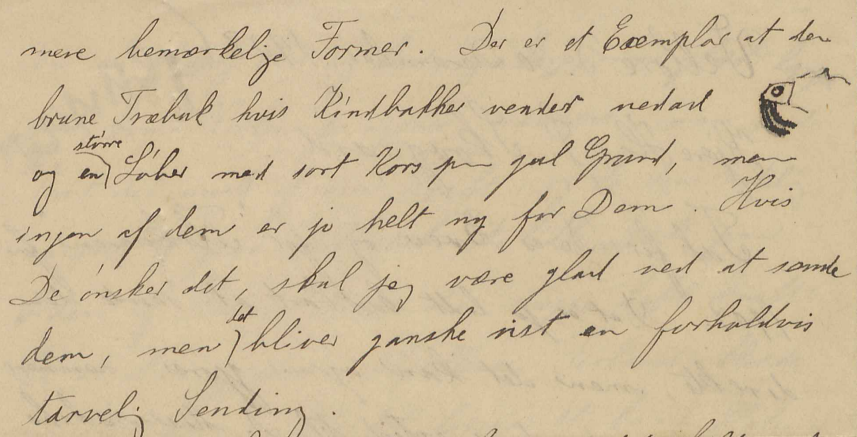 mere bemærkelige Former. Der er et Exemplar at den
brune Træbuk hvis Kindbakker vender nedad
og en større Löber med sort Kors på gul Grund, men
ingen af dem er jo helt ny for Dem. Hvis
De önsker det, skal jeg være glad ved at sende
dem, men det bliver ganske vist en forholdvis
tarvelig Sending.